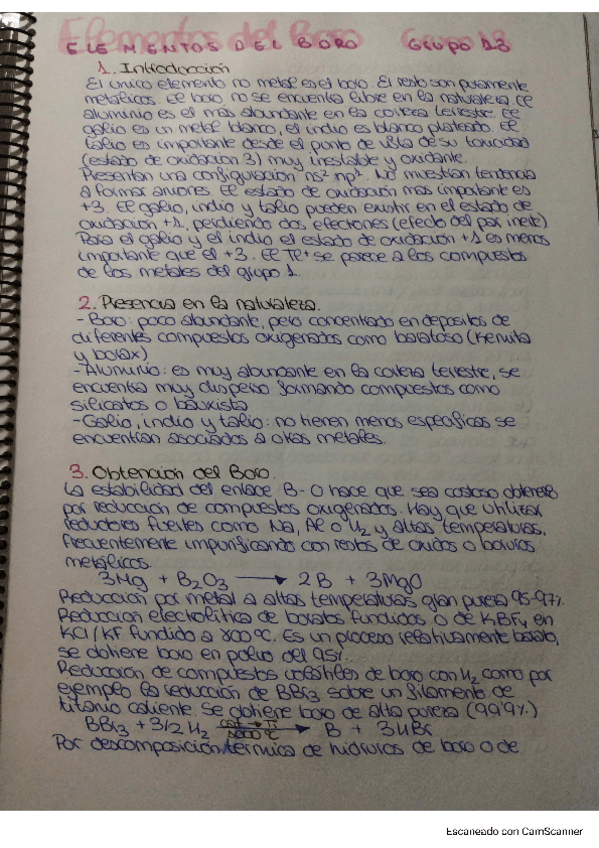 Elementos del Boro Grupo 13
ELEMENTOS DEL BORO GRUPO 13
1. Introducción
El único elemento no metal es el boro. El resto son puramente
metálicos. El boro no se encuentra libre en la naturaleza. El
aluminio es el más abundante en la corteza terrestre. El
galio es un metal blanco, el indio es blanco plateado. El
talio es importante desde el punto de vista de su toxicidad
(estado de oxidación 3) muy inestable y oxidante.
Presentan una configuración ns² np¹. No muestran tendencia
a formar aniones. El estado de oxidación más importante es
+3. El galio, indio y talio pueden existir en el estado de
oxidación +1, perdiendo dos electrones (efecto del par inerte)
Para el galio y el indio el estado de oxidación +1 es menos
importante que el +3. El Tl+ se parece a los compuestos
de los metales del grupo 1.
2. Presencia en la naturaleza.
- Boro: poco abundante, pero concentrado en depósitos de
diferentes compuestos oxigenados como boratoso (Kernita
y borax)
- Aluminio: es muy abundante en la corteza terrestre, se
encuentra muy disperso formando compuestos como
silicatos o bauxista
- Galio, indio y talio: no tienen menas específicas se
encuentran asociados a otros metales.
3. Obtención del Boro.
La estabilidad del enlace B-O hace que sea costoso obtenerlo
por reducción de compuestos oxigenados. Hay que utilizar
reductores fuertes como Na, Al o H₂ y altas temperaturas,
frecuentemente impurificando con restos de óxidos o boruros
metálicos.
3Mg + B₂O₃ → 2B + 3MgO
Reducción por metal a altas temperaturas gran pureza 95-97%.
Reducción electrolítica de boratos fundidos o de KBF₄ en
KCl/KF fundido a 800ºC. Es un proceso relativamente barato,
se obtiene boro en polvo del 95%.
Reducción de compuestos volátiles de boro con H₂ como por
ejemplo la reducción de BBr₃ sobre un filamento de
titanio caliente. Se obtiene boro de alta pureza (99'9%)
BBr₃ + 3/2 H₂ → B + 3HBr
Por descomposición térmica de hidruros de boro o de
Escaneado con CamScanner